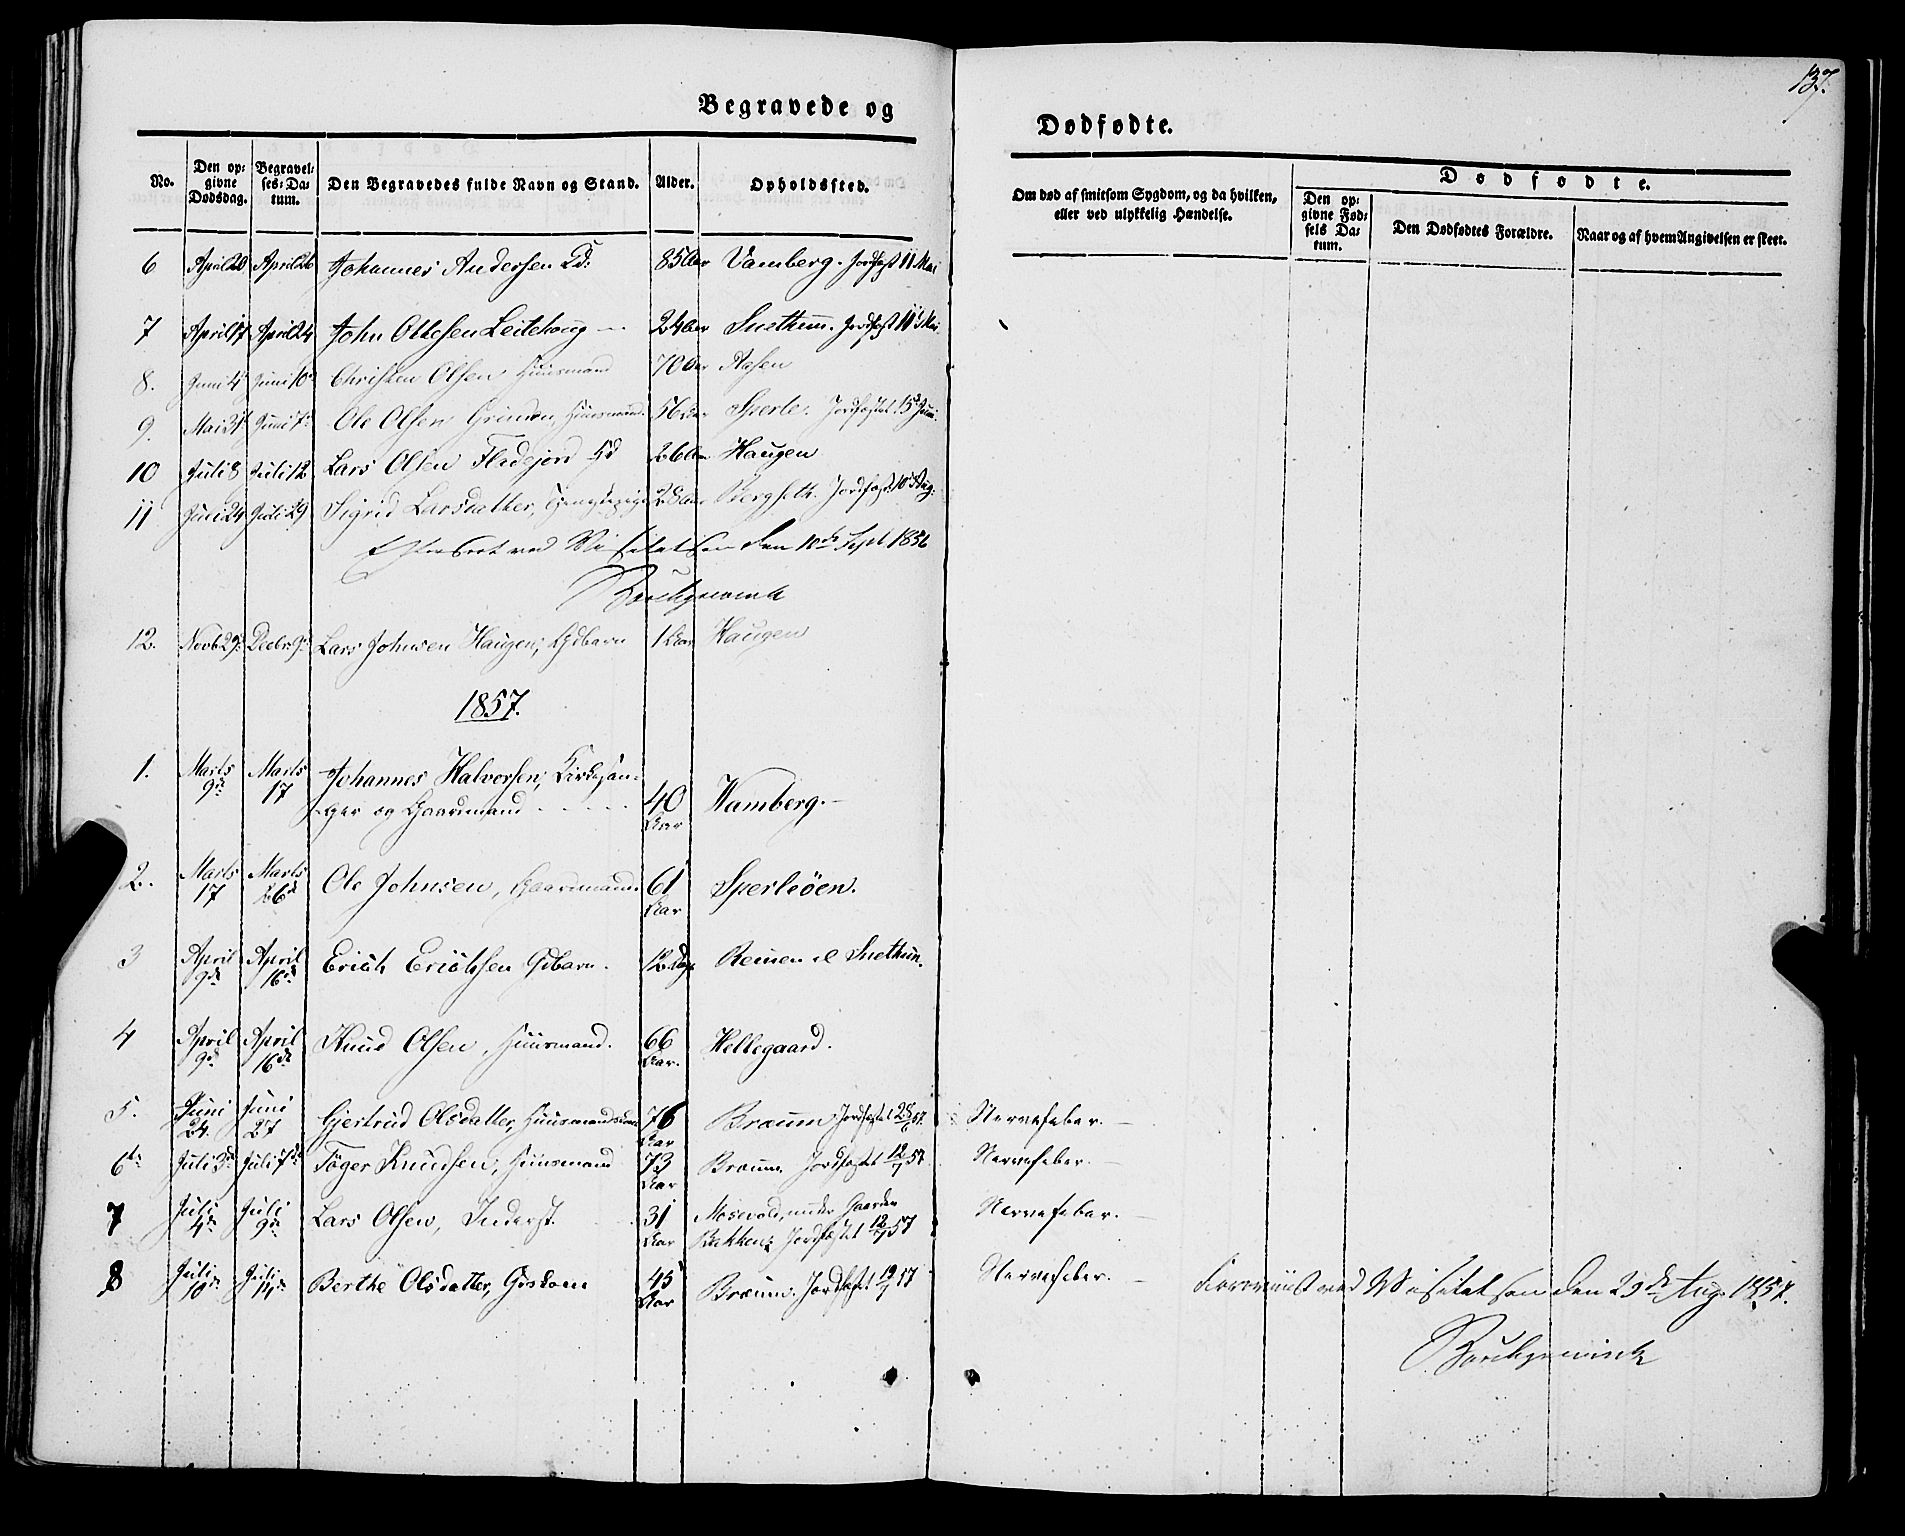 137.
Begravede og
Dødfødte.
No.
Den op-
givne
Dødsdag.
Begravel-
ses-Da-
tum.
Den Begravedes fulde Navn og Stand.
Alder.
Opholdssted.
Om død af smitsom Sygdom, og da hvilken,
eller ved ulykkelig Hændelse.
Dødfødte.
Den op-
givne Fød-
sels Da-
tum.
Den Dødfødtes Forældre.
Naar og af hvem Angivelsen er skeet.
6 April 20 April 26 Johannes Andersen 85 Aar Vamberg. Jordfast 11 Mai
7 April 17 April 24 John Ottesen Leitehoug 24 Aar Snethun. Jordfast 11 Mai
8. Juni 4 Juni 10 Christen Olsen Huusmand 70 Aar Aasen
9. Mai 31 Juni 7 Ole Olsen Grinden, Huusmand. 56 Aar Sperle. Jordfæstet 15d Juni.
10 Juli 8 Juli 12 Lars Olsen Fladejord 26 Aar Haugen
11 Juli 24 Juli 29 Sigrid Larsdatter, 28 Aar Bergseth. Jordfast 10 Aug.
Efterseet ved Visitatsen den 10de Sept 1856
12. Novb 29 Decbr 9 Lars Johnsen Haugen, Gdbarn 1 Aar Haugen
1857.
1. Marts 9de Marts 17 Johannes Halvorsen, Kirkesan-
ger og Gaardmand 40 Aar Wamberg.
2. Marts 17 Marts 26d Ole Johnsen, Gaardmand. 61 Aar Sperleöen.
3 April 9de April 16d Erich Erichsen Gdbarn. 12 Dage Reinen Snethun.
4 April 9d April 16de Knud Olsen, Huusmand. 66 Aar. Hellegaard.
5. Juni 24. Juni 27 Gjertrud Olsdatter, Huusmandskone 76 Aar Bræum Jordfæstet Nervefeber.
6 Juli 3d Juli 7de Töger Knudsen, Huusmand 73 Aar Bræum. Jordfæstet 12/7 57. Nervefeber.
7 Juli 4de Juli 9de Lars Olsen, Inderst. 31 Aar Mosevold, under Gaarden
Bakken; Jordfæstet 12/7 57 Nervefeber.
8 Juli 10de Juli 14de Berthe Olsdatter, 45 Aar Bræum. Jordfæst 19/7 57 Nervefeber.
Foreviist ved Visitatsen den 29de Aug. 1857.